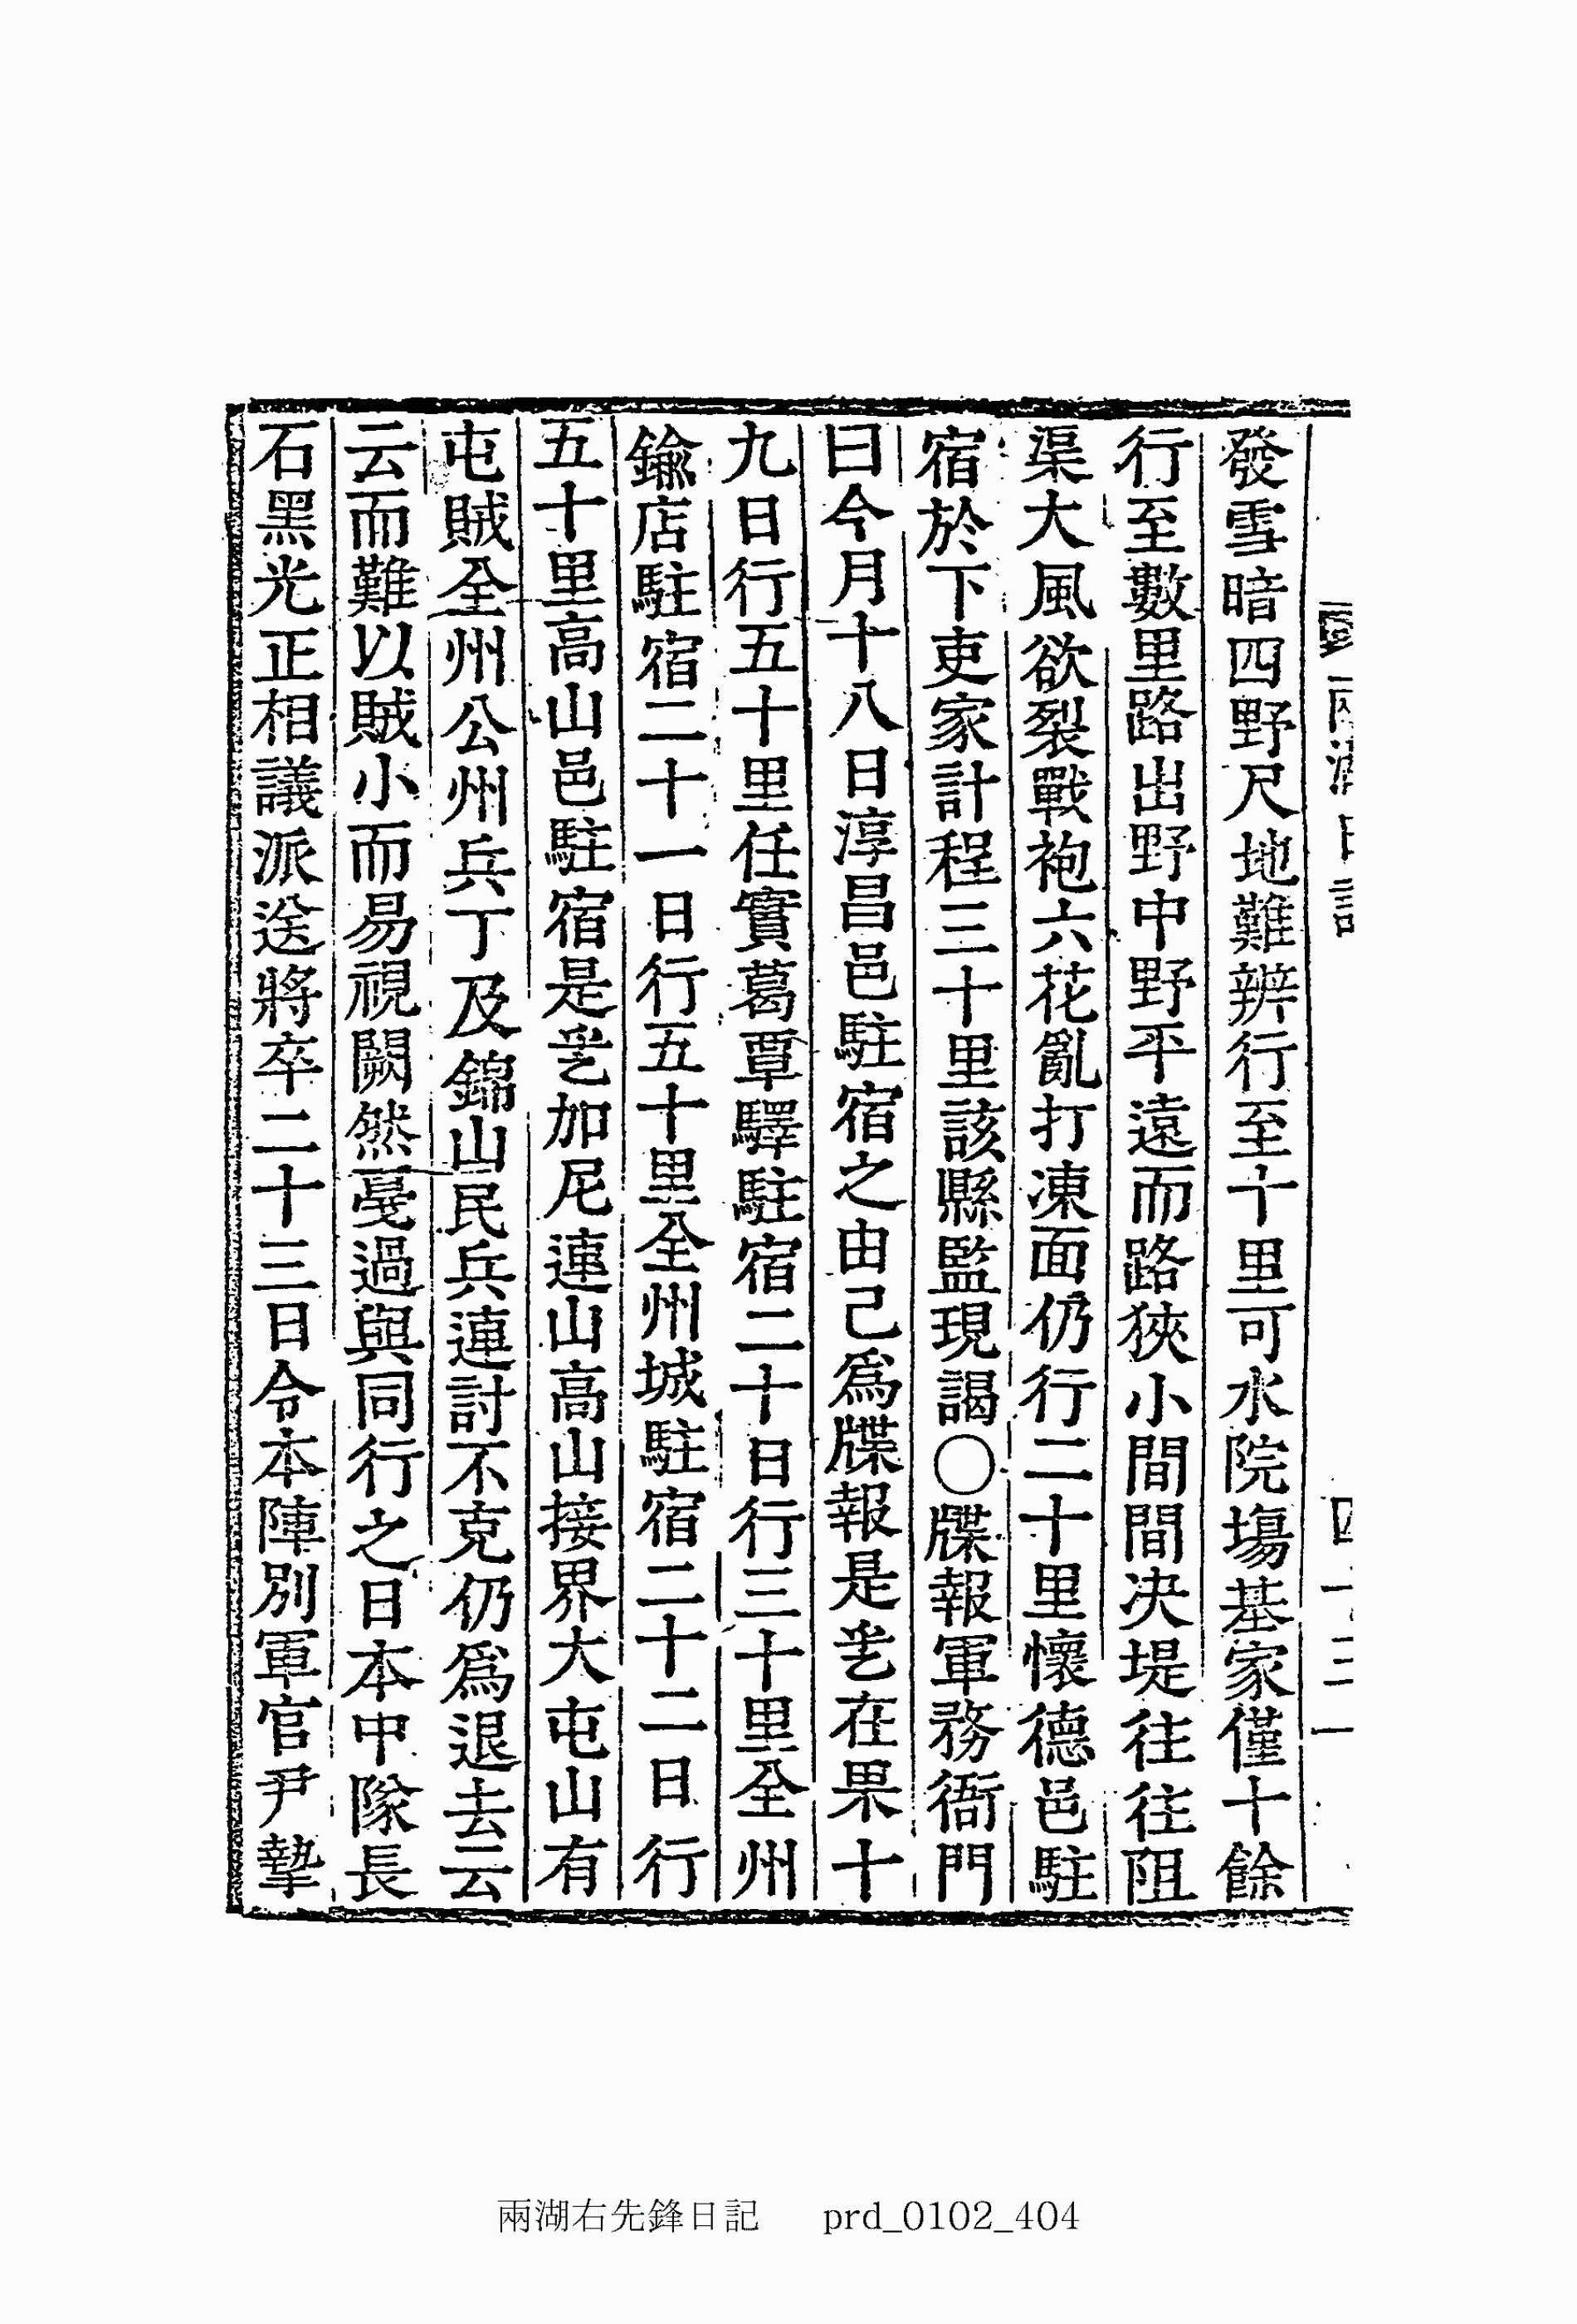 發雪暗四野尺地難辨行至十里可水院塲基家僅十餘
行至數里路出野中野平遠而路狹小間間决堤往往阻
渠大風欲裂戰袍六花亂打凍面仍行二十里懷德邑駐
宿於下吏家計程三十里該縣監現謁○牒報軍務衙門
曰今月十八日淳昌邑駐宿之由己爲牒報是乎在果十
九日行五十里任實葛覃驛駐宿二十日行三十里全州
鍮店駐宿二十一日行五十里全州城駐宿二十二日行
五十里高山邑駐宿是乎加尼連山高山接界大屯山有
屯賊全州公州兵丁及錦山民兵連討不克仍爲退去云
云而難以賊小而易視闕然戞過與同行之日本中隊長
石黑光正相議派送將卒二十三日令本陣別軍官尹摯
兩湖右先鋒日記 prd_0102_404